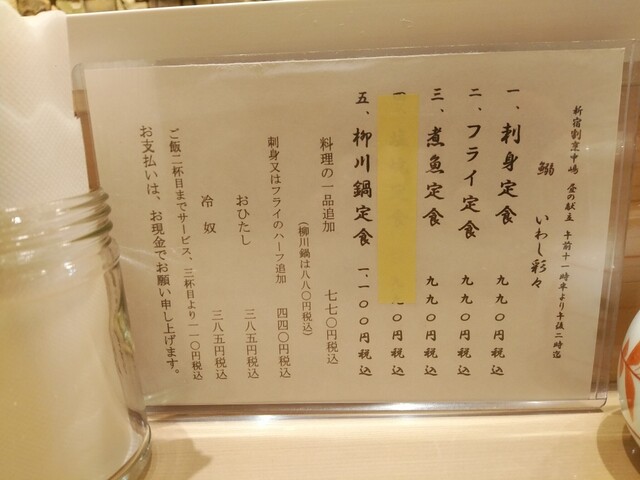 新宿割烹中嶋 昼の献立 午前十一時半より午後二時迄
鰯 いわし彩々
一、刺身定食 九九〇円税込
二、フライ定食 九九〇円税込
三、煮魚定食 九九〇円税込
円税込
五、柳川鍋定食 一、一〇〇円税込
料理の一品追加 七七〇円税込
（柳川鍋は八八〇円税込）
刺身又はフライのハーフ追加 四四〇円税込
おひたし 三八五円税込
冷奴 三八五円税込
ご飯二杯目までサービス、三杯目より一一〇円税込
お支払いは、お現金でお願い申し上げます。